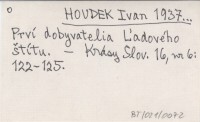 HOUDEK Ivan 1937...
Prví dobyvatelia Ľadového
štítu. – Krásy Slov. 16, nr 6:
122-125.